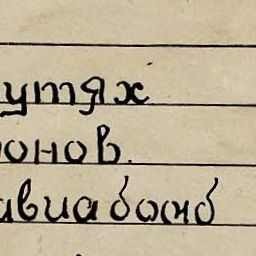 утях
онов.
авиабомб